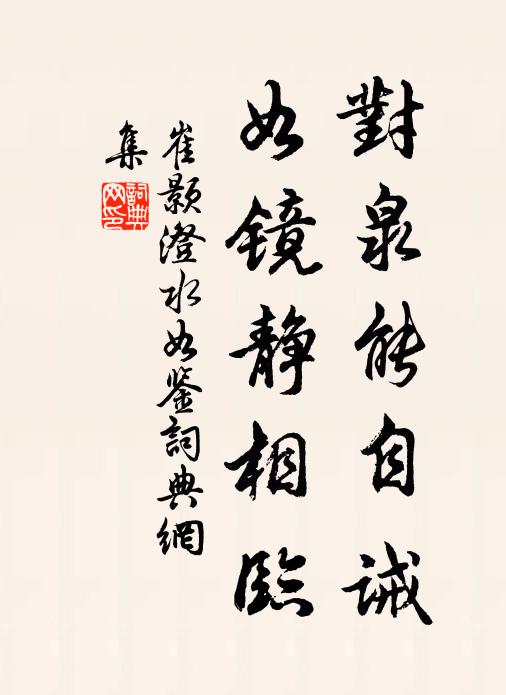 對泉能自誡
如镜静相臨
崔颢澄水如鉴詞典網
集
詞典網印